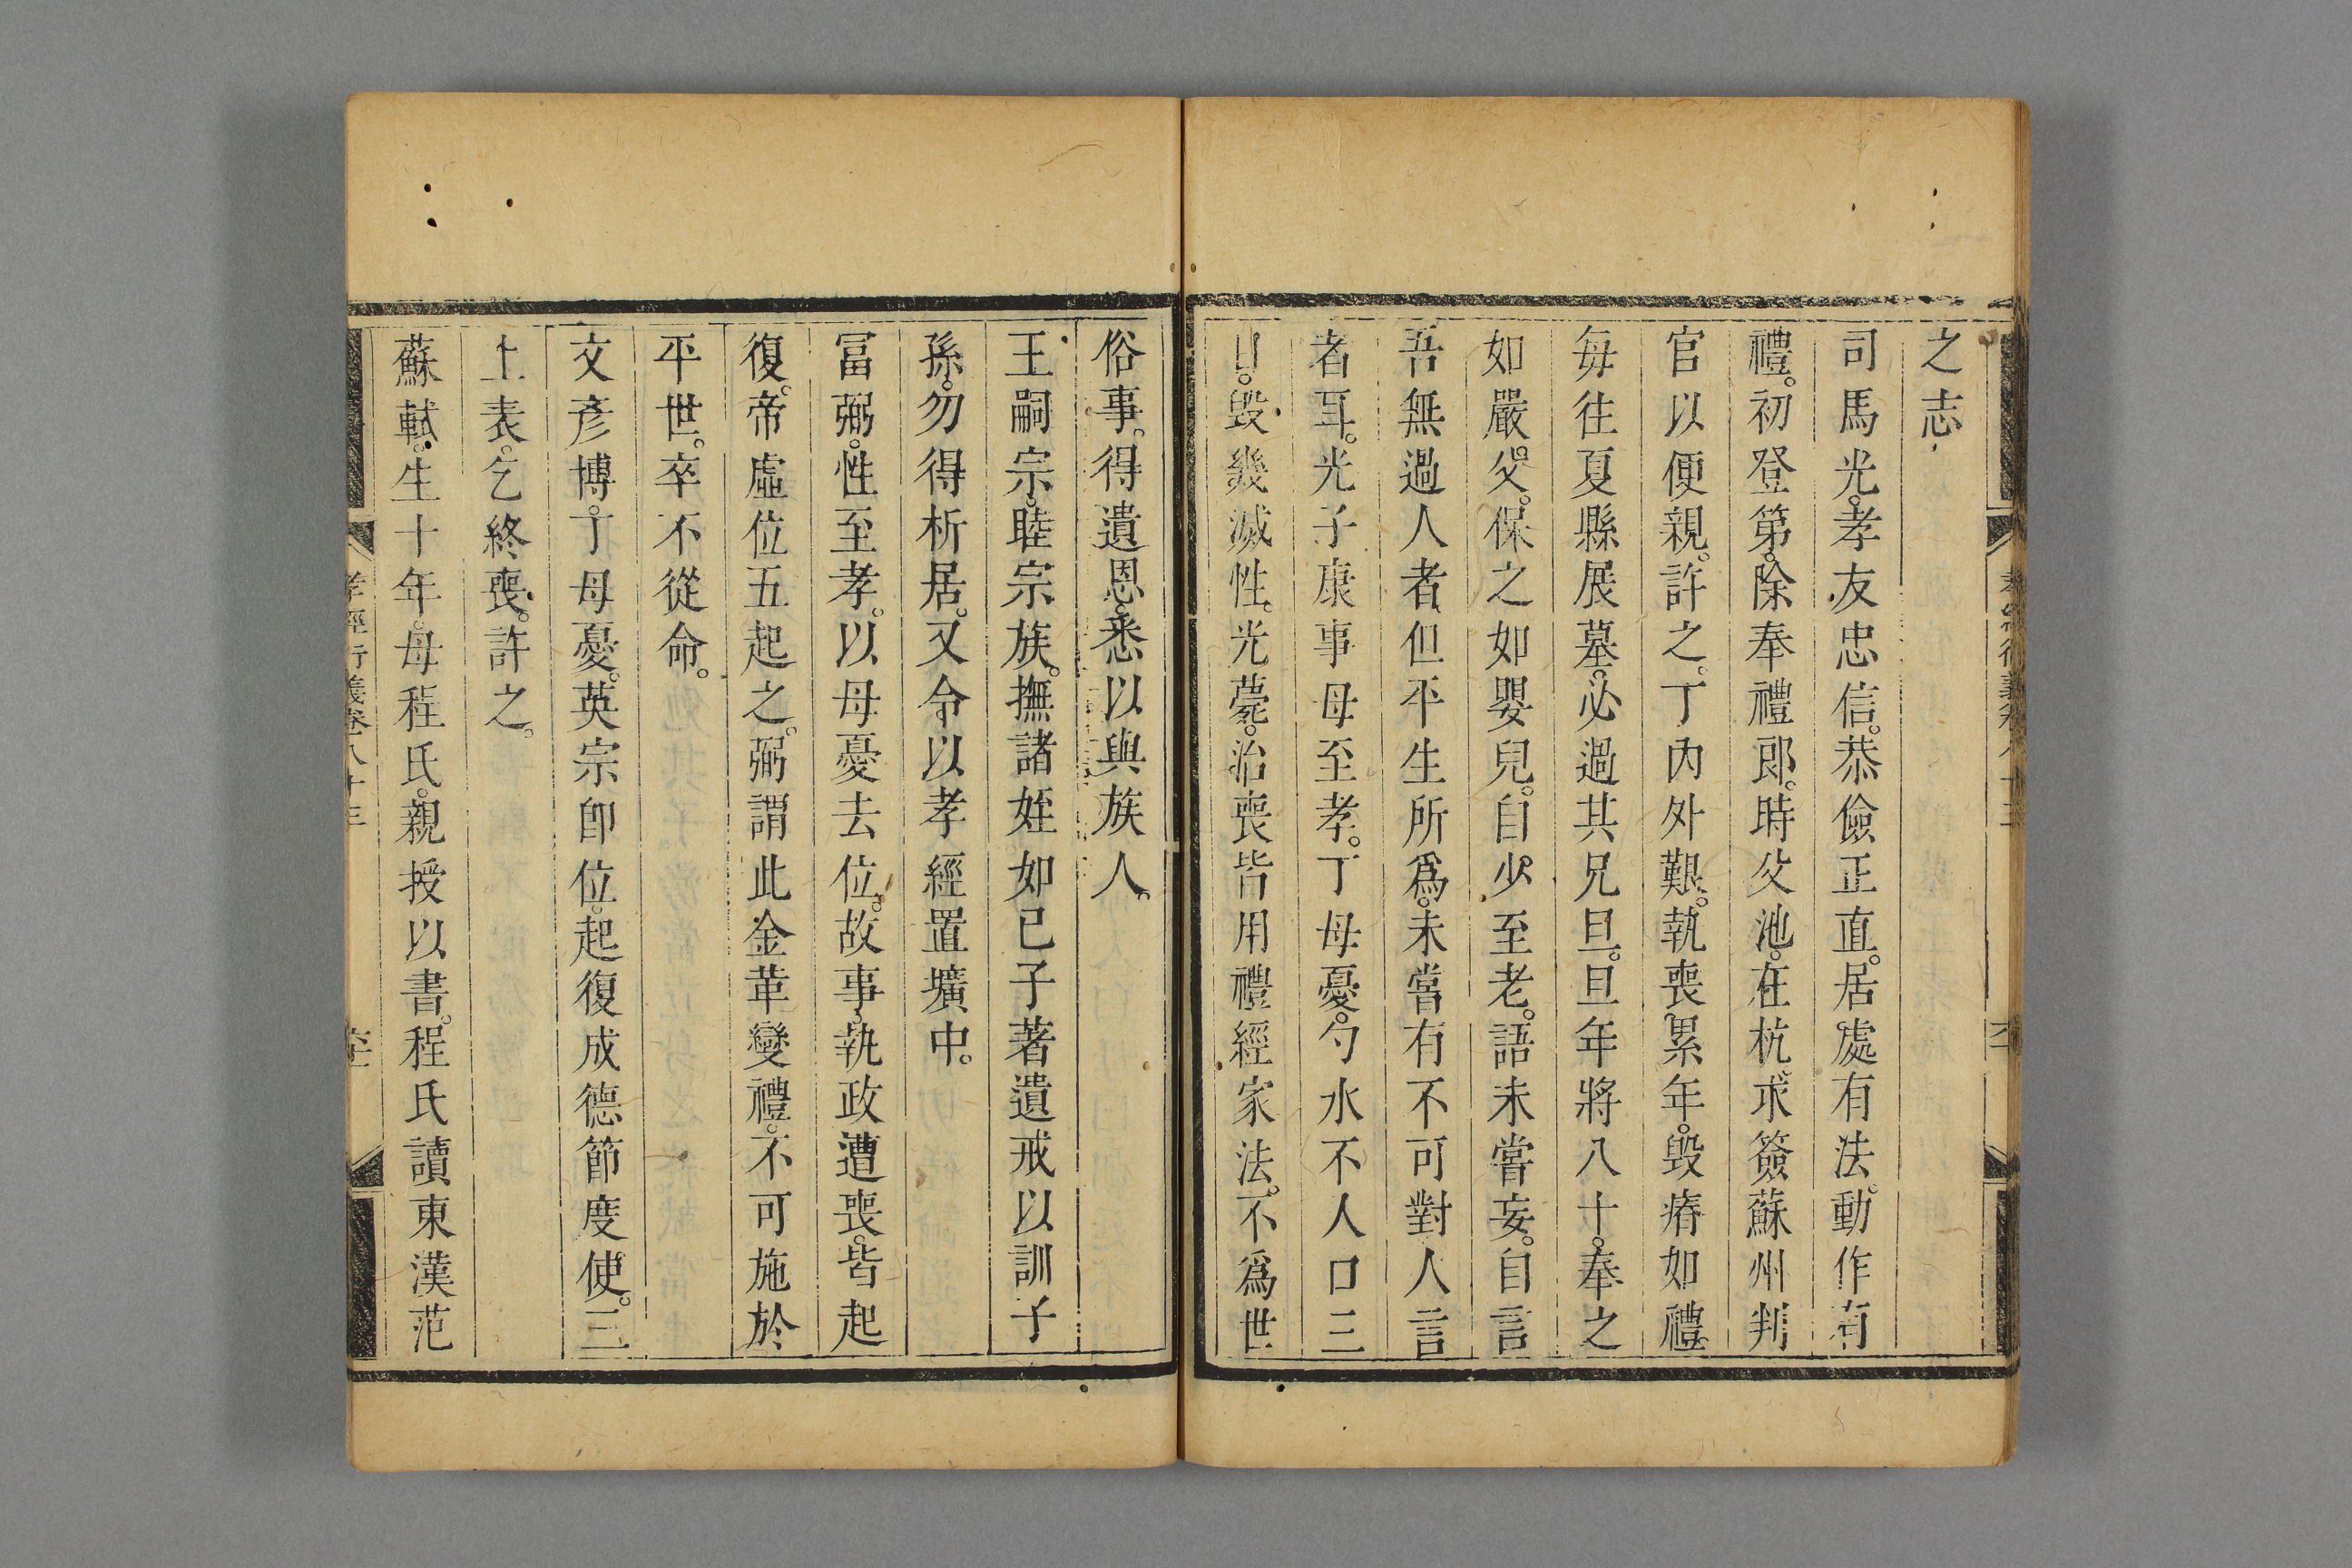 之志
司馬光。孝友忠信。恭儉正直。居處有法。動作有
禮。初登第。除奉禮郎。時父池。在杭。求簽蘇州判
官以便親。許之。丁內外艱。執喪累年。毀瘠如禮。
每往夏縣展墓。必過其兄旦。旦年將八十。奉之
如嚴父。保之如嬰兒。自少至老。語未嘗妄。自言
吾無過人者。但平生所爲。未嘗有不可對人言
者耳。光子康事母至孝。丁母憂。勺水不入口三
日。毀幾滅性。光薨。治喪皆用禮經家法。不爲世
俗事。得遺恩。悉以與族人。
王嗣宗。睦宗族。撫諸姪如己子。著遺戒以訓子
孫。勿得析居。又令以孝經置壙中。
富弼。性至孝。以母憂去位。故事。執政遭喪。皆起
復。帝虛位五起之。弼謂此金革變禮。不可施於
平世。卒不從命。
文彥博。丁母憂。英宗卽位。起復成德節度使。三
上表。乞終喪。許之。
蘇軾。生十年。母程氏。親授以書。程氏讀東漢范
孝經衍義卷八十三